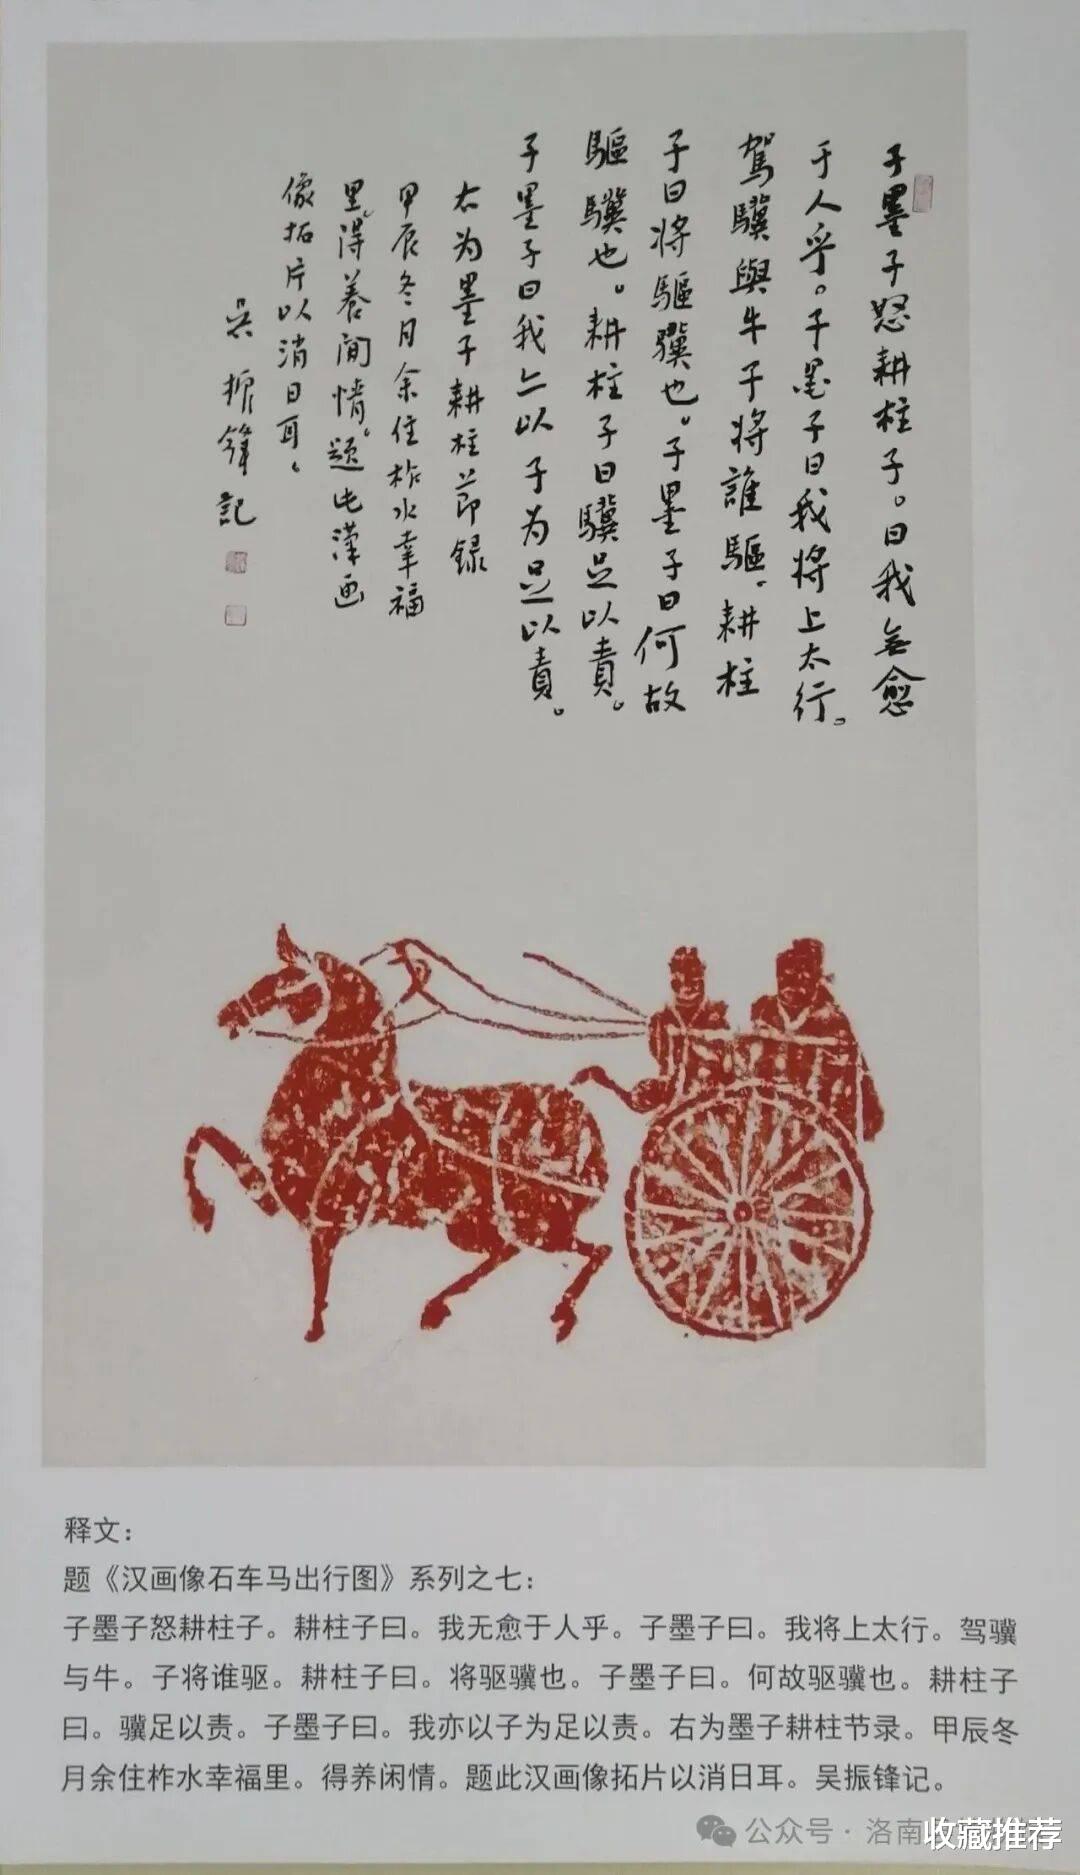 子墨子怒耕柱子。曰我無愈
于人乎。子墨子曰我将上太行。
駕驥與牛子将誰驅、耕柱
子曰将驅驥也。子墨子曰何故
驅驥也。耕柱子曰驥足以責。
子墨子曰我亦以子为足以責。
右为墨子耕柱节録
甲辰冬月余住柞水幸福
里。得养间情。题此漢画
像拓片以消日耳、
吴振锋記
释文：
题《汉画像石车马出行图》系列之七：
子墨子怒耕柱子。耕柱子曰。我无愈于人乎。子墨子曰。我将上太行。驾骥
与牛。子将谁驱。耕柱子曰。将驱骥也。子墨子曰。何故驱骥也。耕柱子
曰。骥足以责。子墨子曰。我亦以子为足以责。右为墨子耕柱节录。甲辰冬
月余住柞水幸福里。得养闲情。题此汉画像拓片以消日耳。吴振锋记。
公众号·洛南
收藏推荐